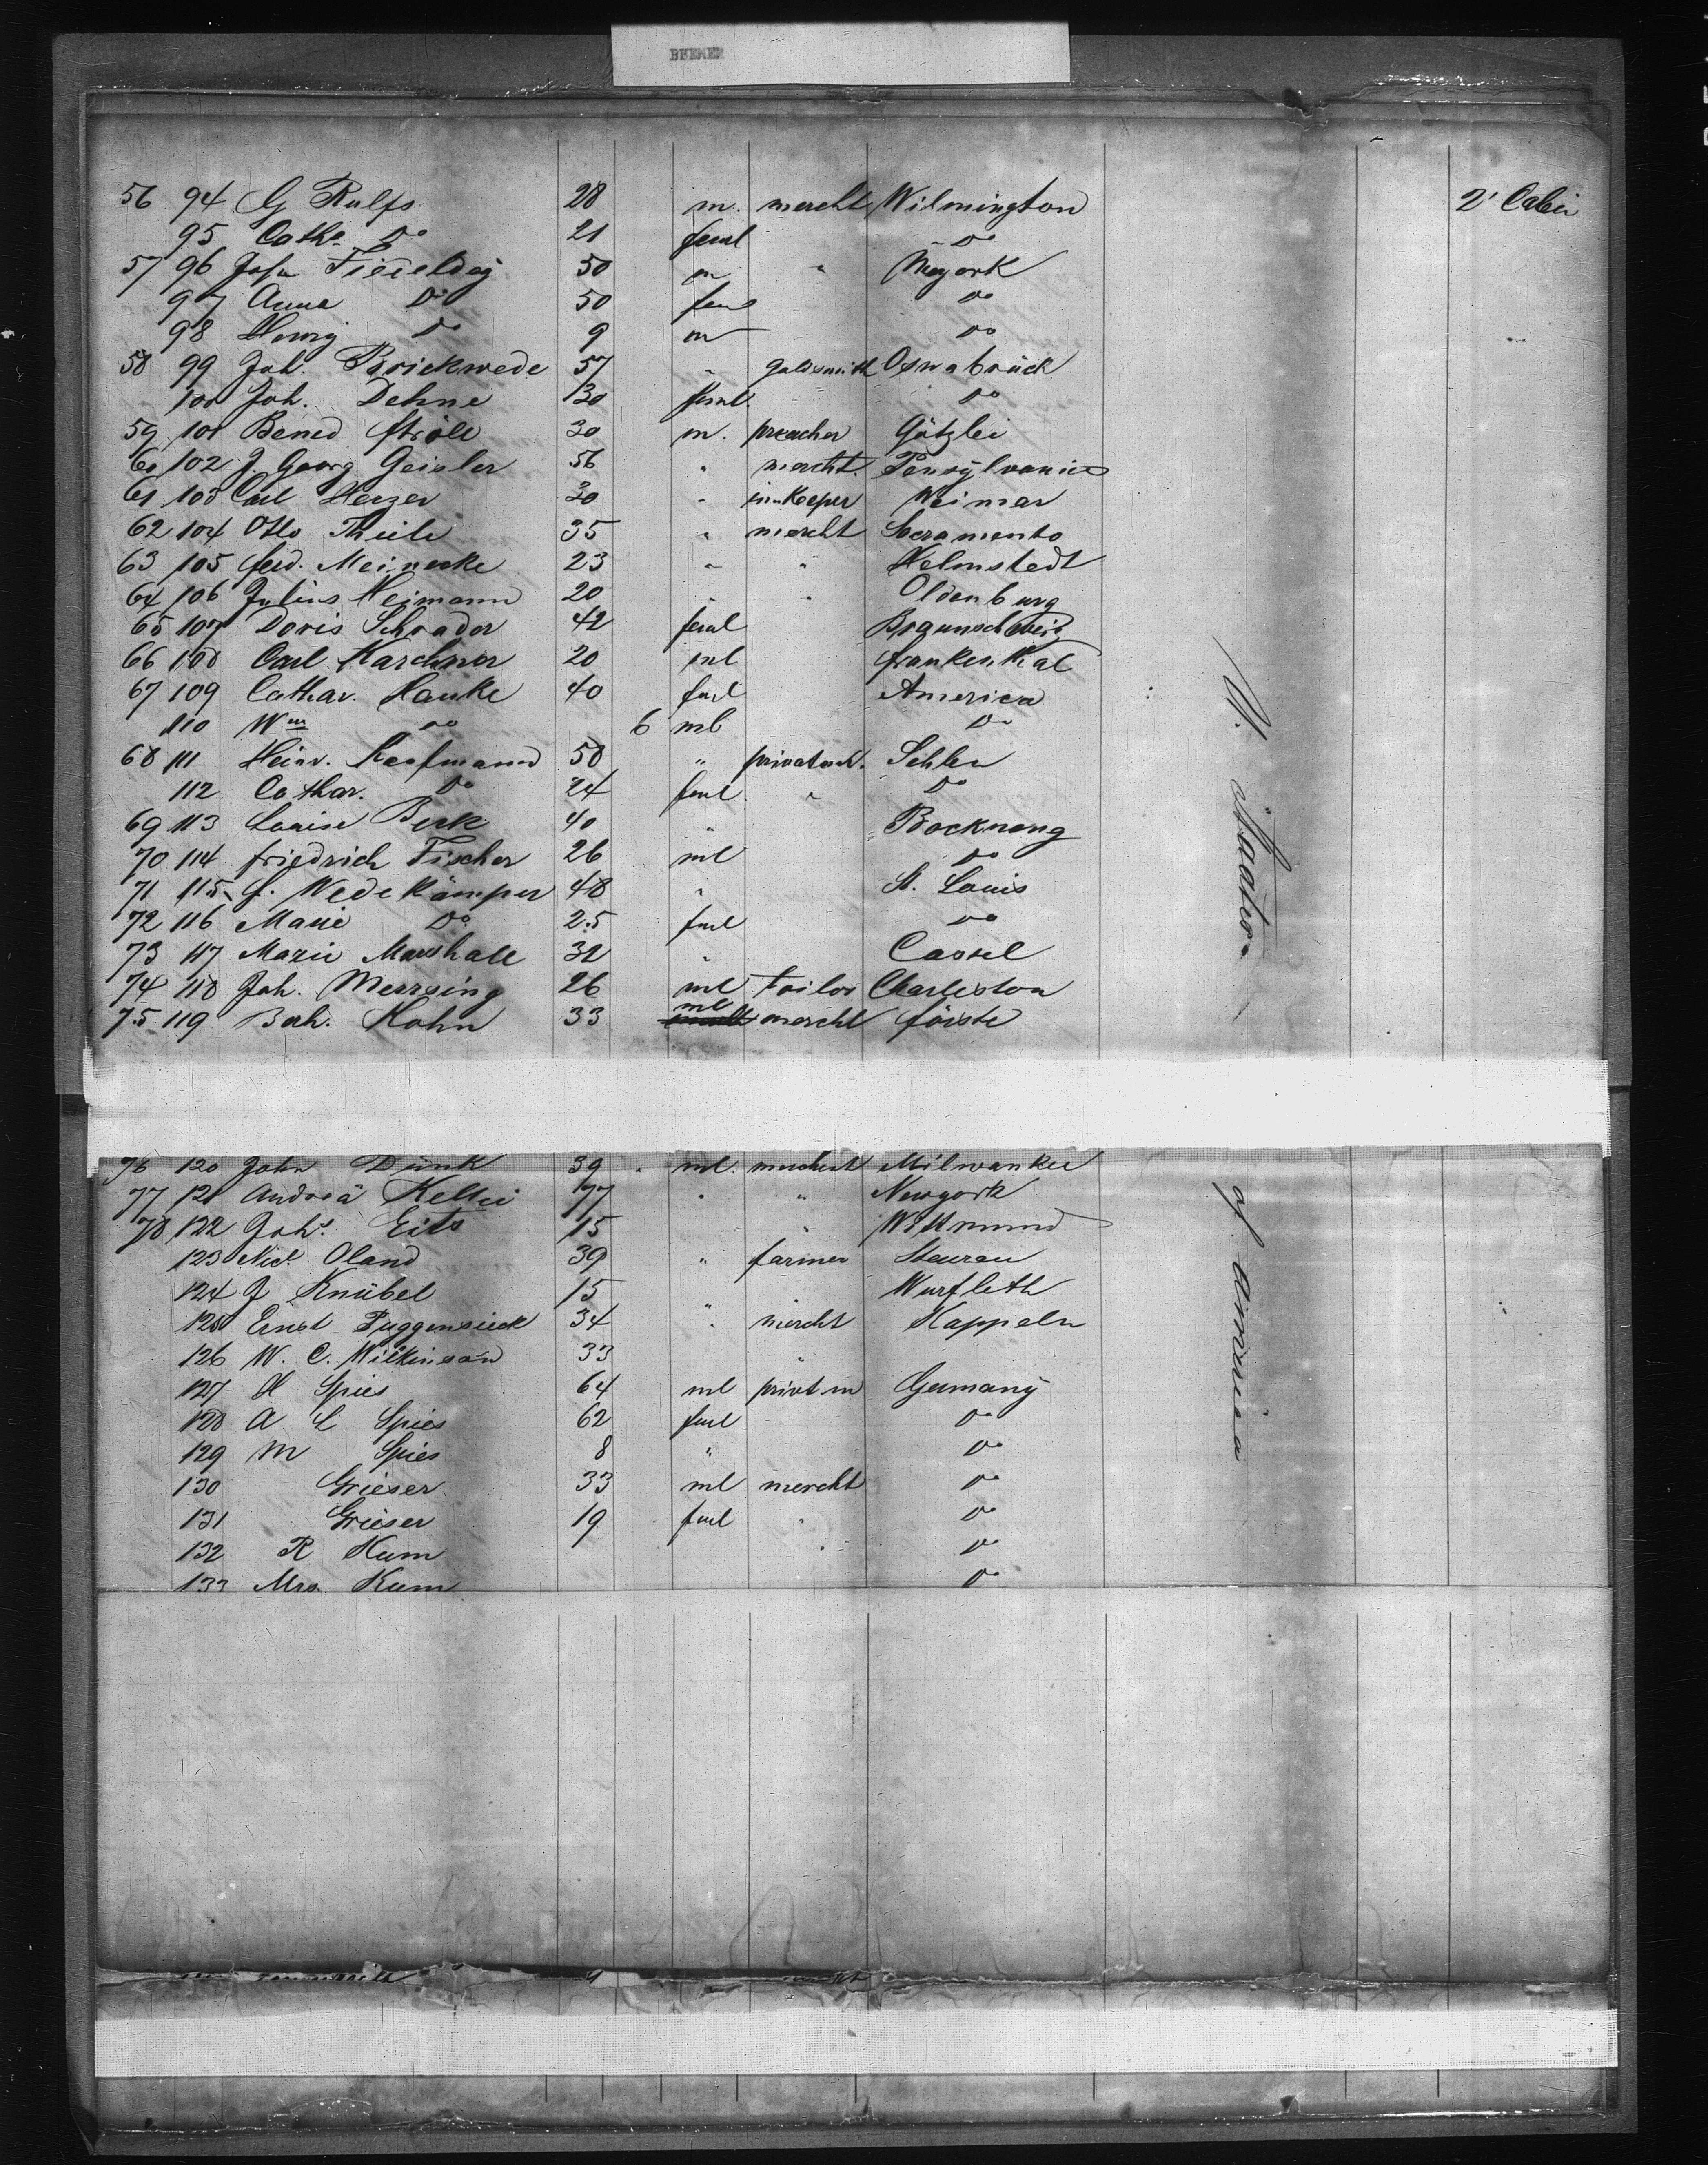 BREMEN
56 94 G Rulfs 28 m. mercht Wilmington 2' Cabin
95 Cath. Do 21 feml Do
57 96 50 m " Neyork
97 Anna Do 50 fem Do
98 Henry Do 9 m Do
58 99 Joh. Brickwede 57 " goldsmith Osnabrück
100 Joh. Dehne 30 feml. Do
59 101 Bened 30 m. preacher
60 102 J. Georg Geisler 56 " mercht. Pensylvania
61 103 Carl Herzer 30 " innkeeper Weimar
62 104 Otto Thiele 35 " mercht Sacramento
63 105 ferd. Meinecke 23 " " Helmstedt
64 106 Julius Heimann 20 " " Oldenburg
65 107 Doris Schrader 42 feml Braunschweig
66 108 Carl Karchner 20 ml frankenthal
67 109 Cathar. Hauke 40 feml America
110 Wm Do 6 ml Do
68 111 Heinr. Kaufmann 50 " Sehlen
112 Cathar. Do 24 feml " Do
69 113 Louise Berk 40 " Backnang
70 114 friedrich Fischer 26 ml Do
71 115 Wedekämper 48 " St. Louis
72 116 Marie Do 25 feml Do
73 117 Marie Marshall 32 " Cassel
74 118 Joh. Merrsing 26 ml tailor Charleston
75 119 Kohn 33 ml mercht
76 120 John Dunk 39 " ml. merchant Milwaukee
77 121 Andreä 77 " " Newyork
78 122 Joh. Eits 15 " " Wittmund
123 Nic. Oland 39 " farmer
124 J Knübel 15 " Wurfleth
125 Ernst Puggensieck 34 " mercht Kappeln
126 W. C. Wilkinson 33 "
127 H Spies 64 ml privt m Germany
128 A L Spies 62 feml Do
129 M Spies 8 " Do
130 Grieser 33 ml mercht Do
131 Grieser 19 feml " Do
132 R Kum " Do
133 Mrs. Kum Do
U. Staates
of America